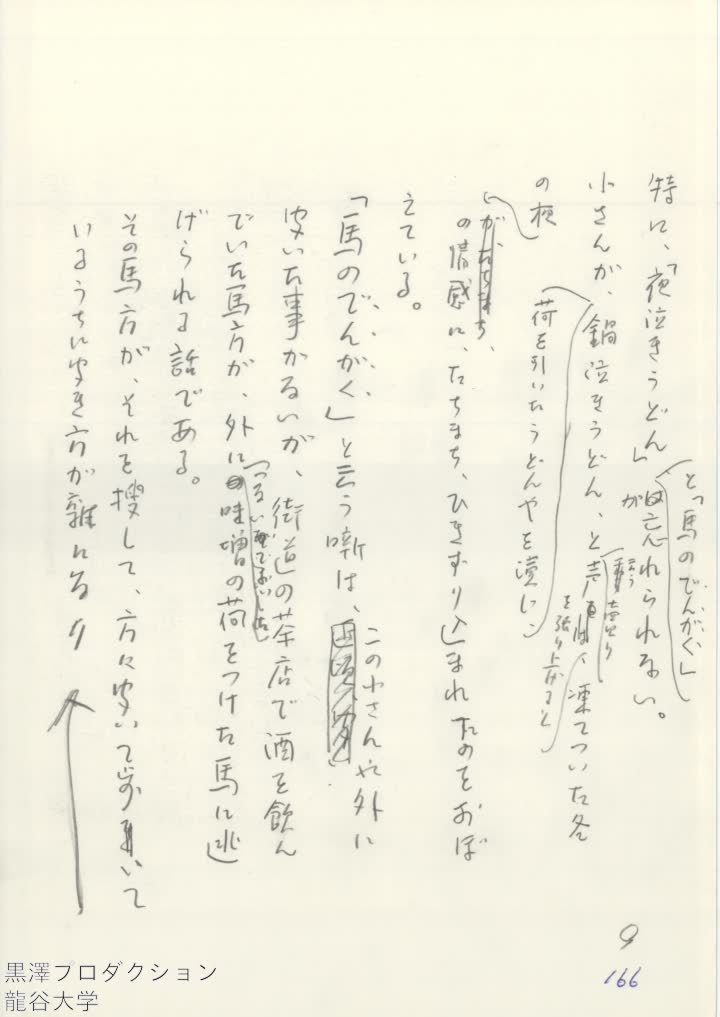 特に、「夜泣きうどん」
が忘れられない。
と「馬のでんがく」
小さんが、鍋泣きうどん、と
云う売り
を張り上げると
凍てついた冬
の夜
荷を引いたうどんやを演じ
の情感に、たちまち、ひきずり込まれたのをおぼ
えている。
「馬のでんがく」と云う噺は、この小さん以外に
聞いた事がないが、街道の茶店で酒を飲ん
でいた馬方が、外に
つないで
味噌の荷をつけた馬に逃
げられる話である。
その馬方が、それを捜して、方々聞いて歩いて
いるうちに聞き方が雑になり
9
166
黒澤プロダクション
龍谷大学